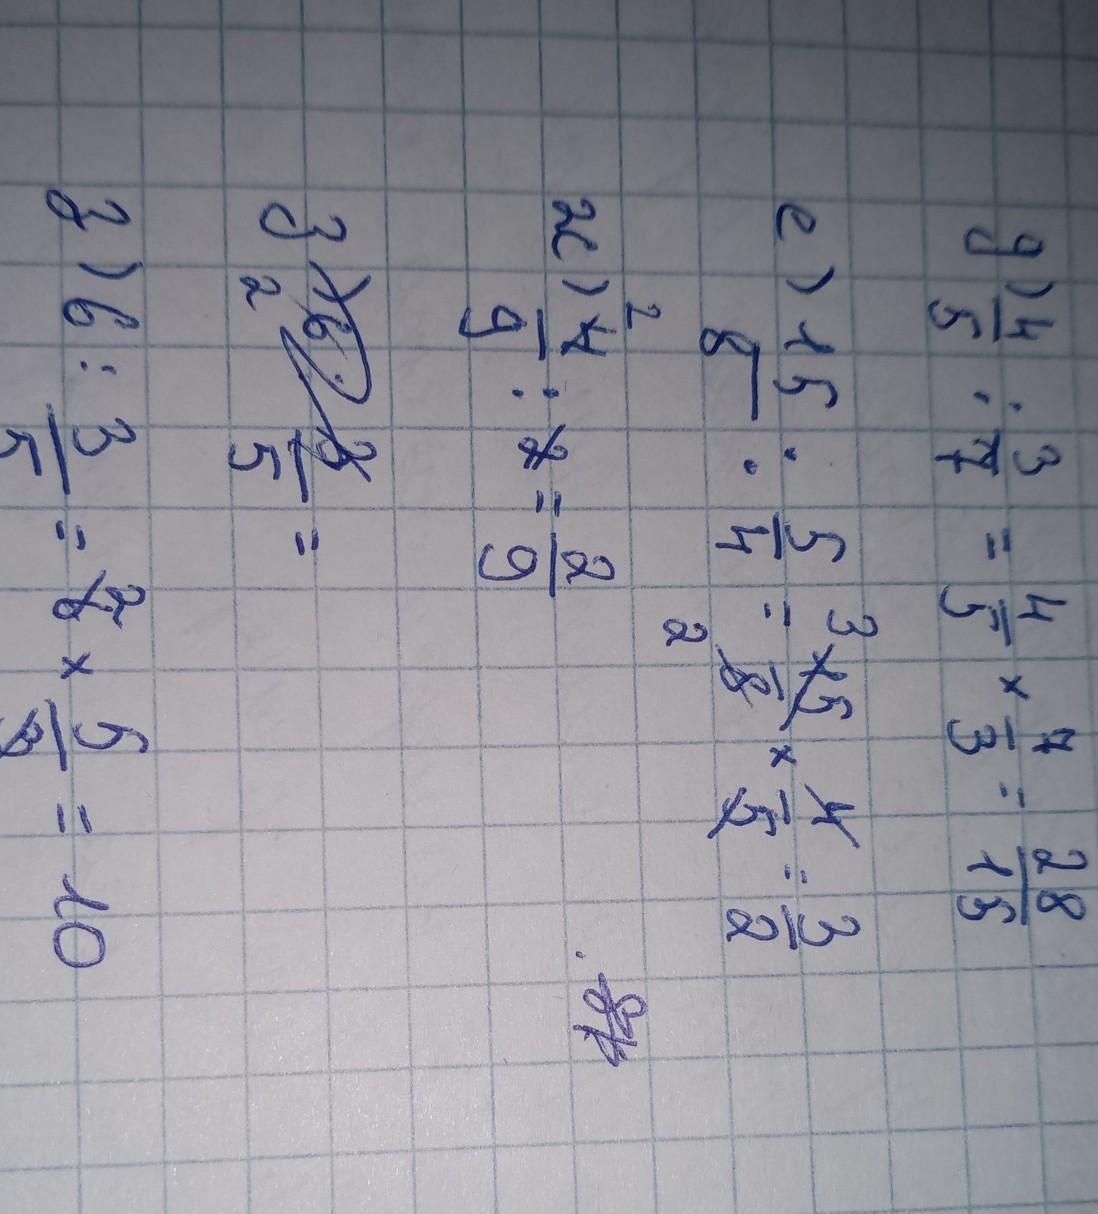 g) 4/5 : 3/7 = 4/5 × 7/3 = 28/15
e) 15/8 : 5/4 = 3 15/8 2 × 4/5 = 3/2
ж) 2 4/9 : 2 = 2/9
з) 2/5 =
з) 6 : 3/5 = 2 × 5/3 = 10